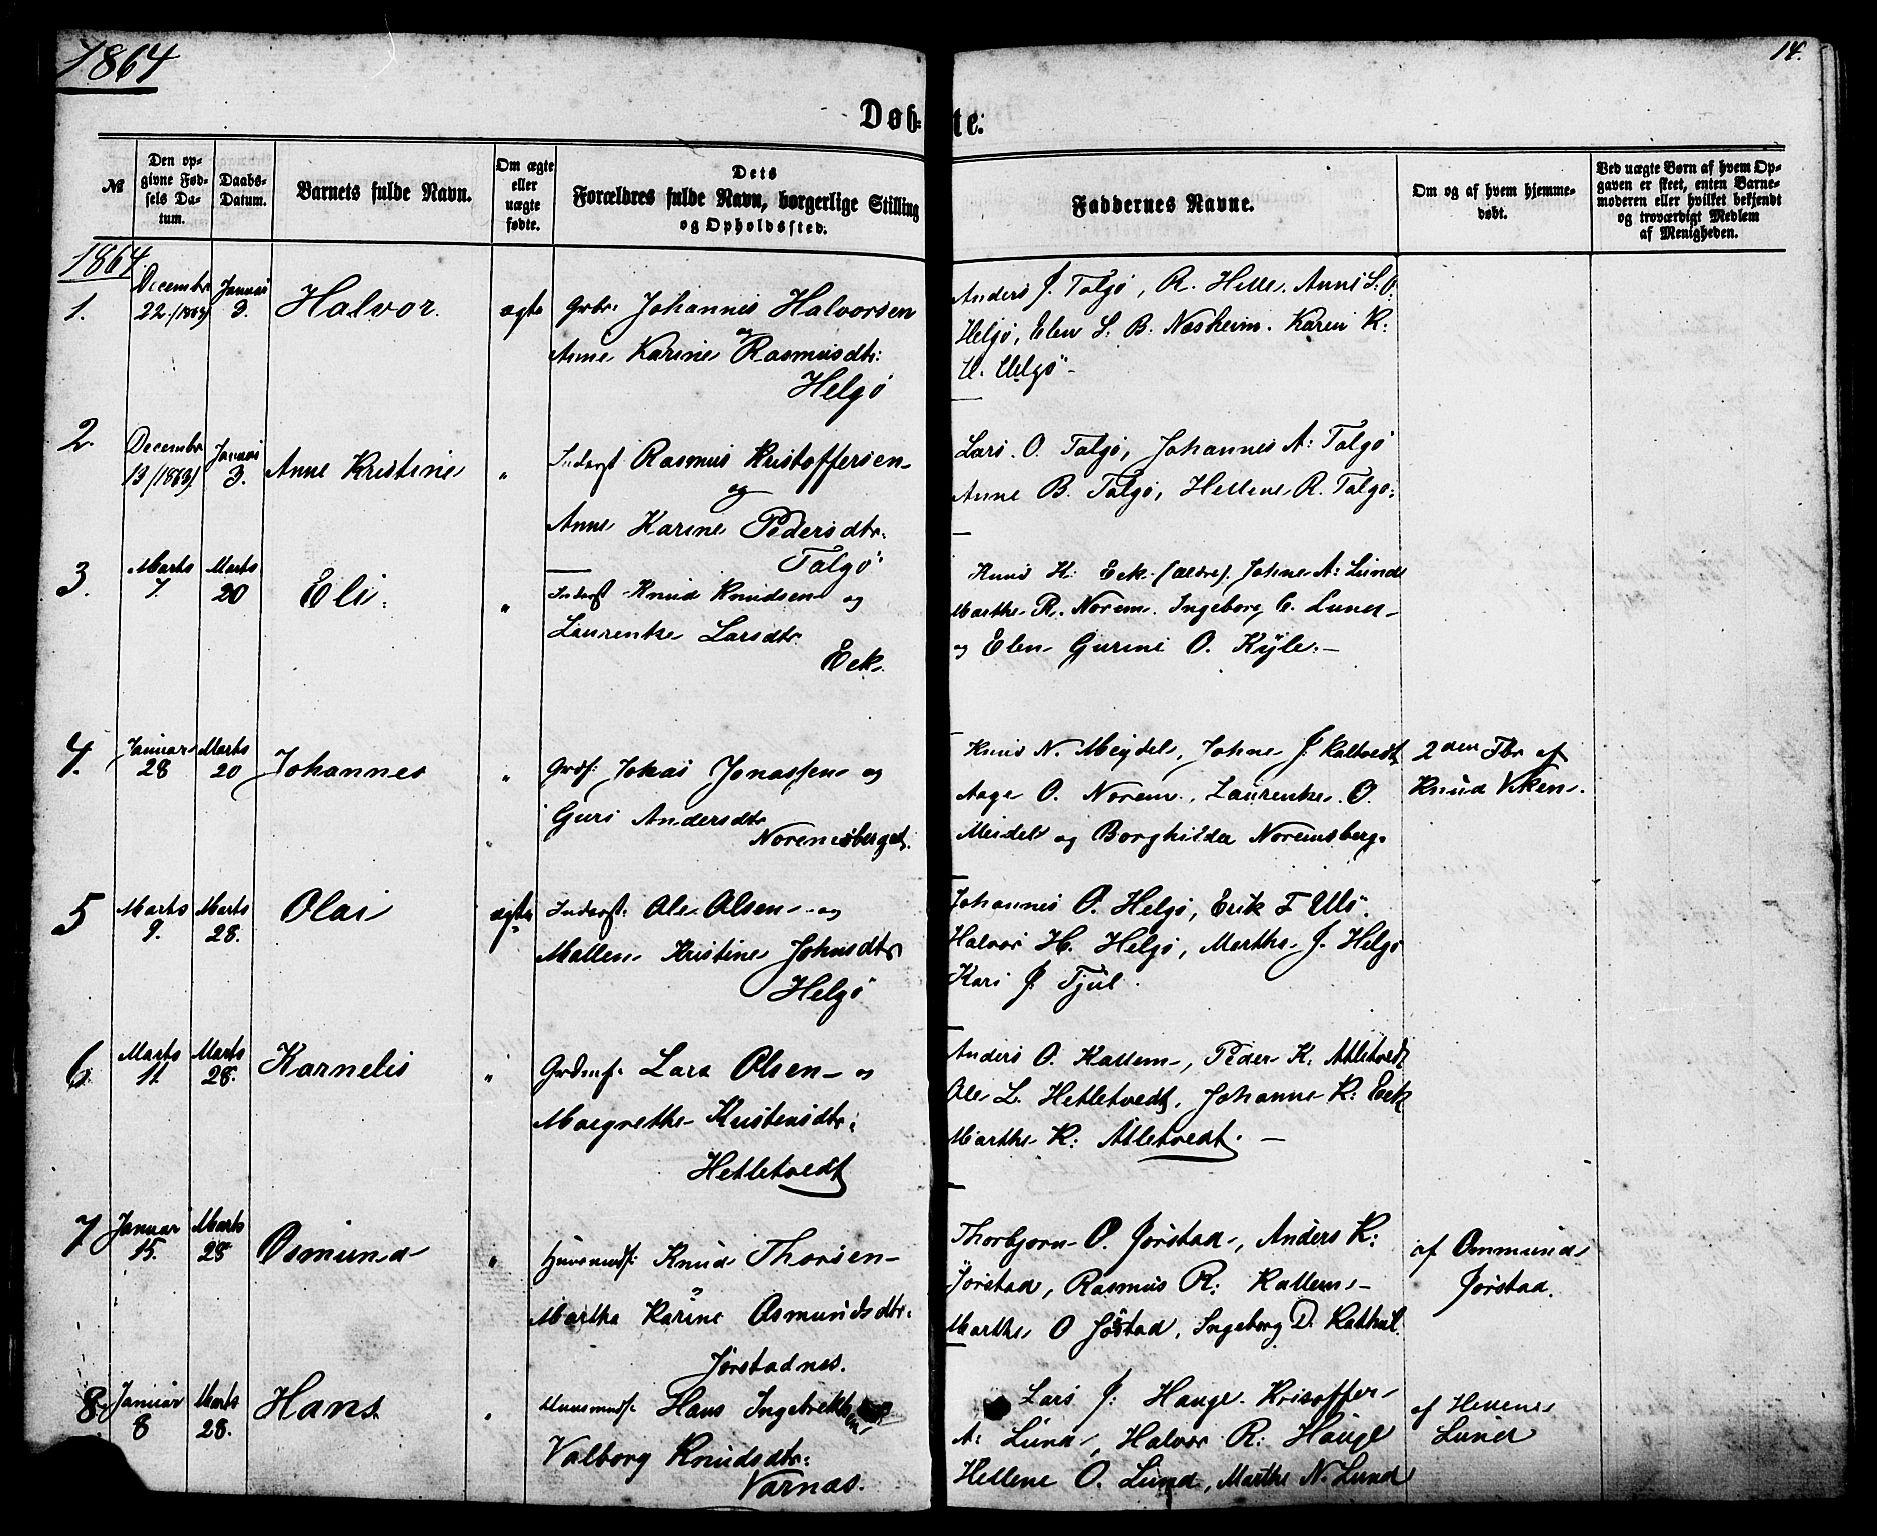 1864
14.
Døb-te.
№
Den opgivne Fødsels Datum.
Daabs-Datum.
Barnets fulde Navn.
Om ægte eller uægte fødte.
Dets Forældres fulde Navn, borgerlige Stilling og Opholdssted.
Faddernes Navne.
Om og af hvem hjemmedøbt.
Ved uægte Børn af hvem Opgaven er skeet, enten Barnemoderen eller hvilket bekjendt og troværdigt Medlem af Menigheden.
1864.
1. Decembr 22. (1863) Januar 3. Halvor. ægte Grbr: Johannes Halvorsen
og
Anne Karine Rasmusdtr:
Helgö
Anders J. Talgø, R. Helle, Anne S. O:
Helgö, Elen S. B. Nesheim. Karen K:
H. Helgö -
2. Decembr 13 (1863) Januar 3. Anne Kristine " Inderst Rasmus Kristoffersen
og
Anne Karine Pedersdtr:
Talgö
Lars O. Talgö, Johannes A: Talgö
Anne B. Talgö, Hellene R. Talgö:
3. Marts 7. Marts 20 Eli: " Inderst Knud Knudsen og
Laurentze Larsdtr:
Eek
Knud K: Eek (ældre). Johne A: Lunde
Marthe R. Norem. Ingeborg C. Lunde
og Elen Gurine O. Kyle. -
4. Januar 28 Marts 20 Johannes " Grdsf: Jonas Jonassen og
Guri Andersdtr
Noremsberget.
Knud N. Meydel, Johne J. Kaltvedt
Aage O. Norem, Laurentze O.
Meidel og Borghilda Noremsberg.
2den Fbr af
Knud Viken.
5 Marts 9. Marts 28. Olai ægte Inderst: Ole Olsen og
Mallene Kristine Johnsdtr
Helgö
Johannes O. Helgö, Erik F Ulö.
Halvor H. Helgö, Marthe J. Helgö
Kari J. Tjul.
6. Marts 11. Marts 28. Karnelis " Grdmf: Lars Olsen og
Margrethe Kustensdtr:
Hetletvedt
Anders O. Kallem, Peder K. Atletvedt
Ole L. Hetletvedt. Johanne K: Eek
Marthe K: Atletvedt. -
7 Januar 15. Marts 28 Osmund " Huusmdsf: Knud Thorsen
og
Martha Karine Osmundsdtr:
Jørstadnes.
Thorbjørn O. Jørstad, Anders K:
Jørstad, Rasmus R: Kallem
Marthe O Jøstad, Ingeborg D.
af Ommund
Jørstad.
8. Januar 8 Marts 28. Hans " Huusmdsf: Hans Ingebrektsen
Valborg Knudsdtr:
Varnæs.
Lars J: Hauge. Kristoffer
A: Lund, Halvor R: Hauge
Hellene O. Lund, Marthe N. Lund
af Hellene
Lunde